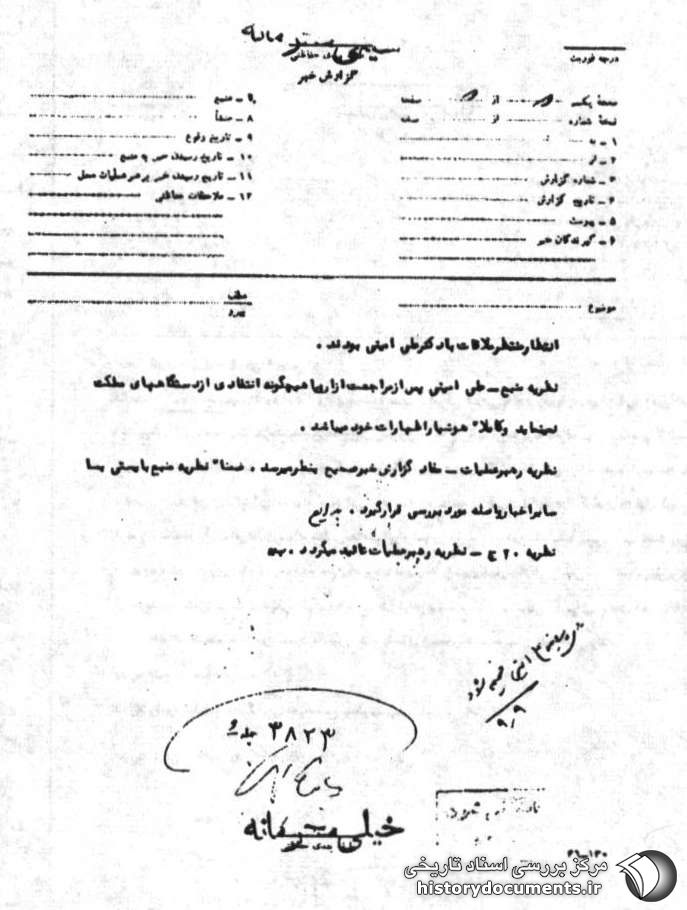 خیلی محرمانه
گزارش خبر
درجه فوریت
صفحهٔ یکم از صفحه
نسخهٔ شماره از نسخه
۱ - به
۲ - از
۳ - شماره گزارش
۴ - تاریخ گزارش
۵ - پیوست
۶ - گیرندگان خبر
۷ - منبع
۸ - منشأ
۹ - تاریخ وقوع
۱۰ - تاریخ رسیدن خبر به منبع
۱۱ - تاریخ رسیدن خبر به رهبر عملیات محل
۱۲ - ملاحظات حفاظتی
موضوع
انتظار منتظر ملاقات با دکتر علی امینی بودند .
نظریه منبع - علی امینی پس از مراجعت از اروپا هیچگونه انتقادی از دستگاههای مملکت
نمینماید و کاملا" هوشیار اظهارات خود میباشد .
نظریه رهبر عملیات - مفاد گزارش خبر صحیح بنظر میرسد . ضمنا" نظریه منبع بایستی با
سایر اخبار واصله مورد بررسی قرار گیرد .
نظریه ۲۰ ج - نظریه رهبر عملیات تائید میگردد .
۹/۹
۳۸۲۳
خیلی محرمانه
مرکز بررسی اسناد تاریخی
historydocuments.ir